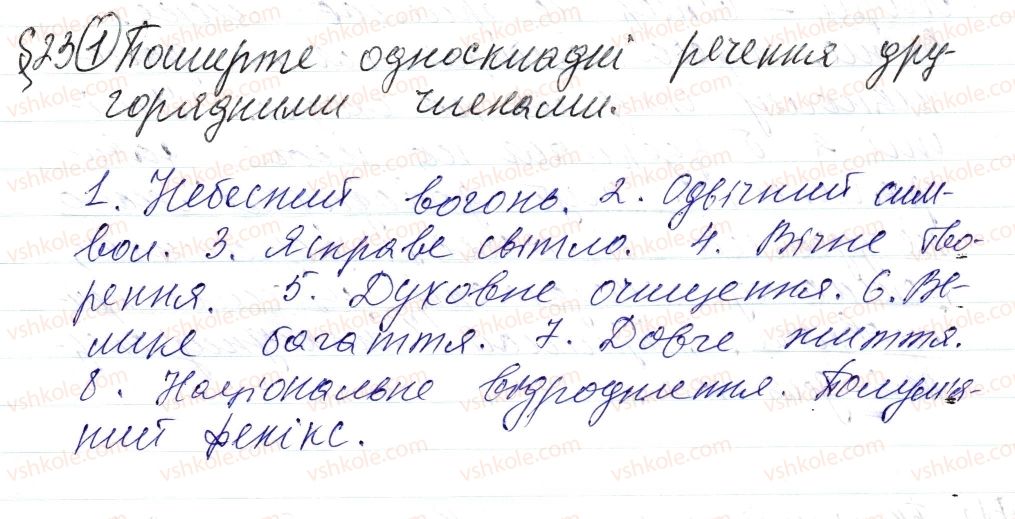 §23 (1) Поширте односкладні речення дру-
горядними членами.
1. Небесний вогонь. 2. Одвічний сим-
вол. 3. Яскраве світло. 4. Вічне тво-
рення. 5. Духовне очищення. 6. Ве-
лике багаття. 7. Довге життя.
8. Національне відродження. Полум'я-
ний фенікс.